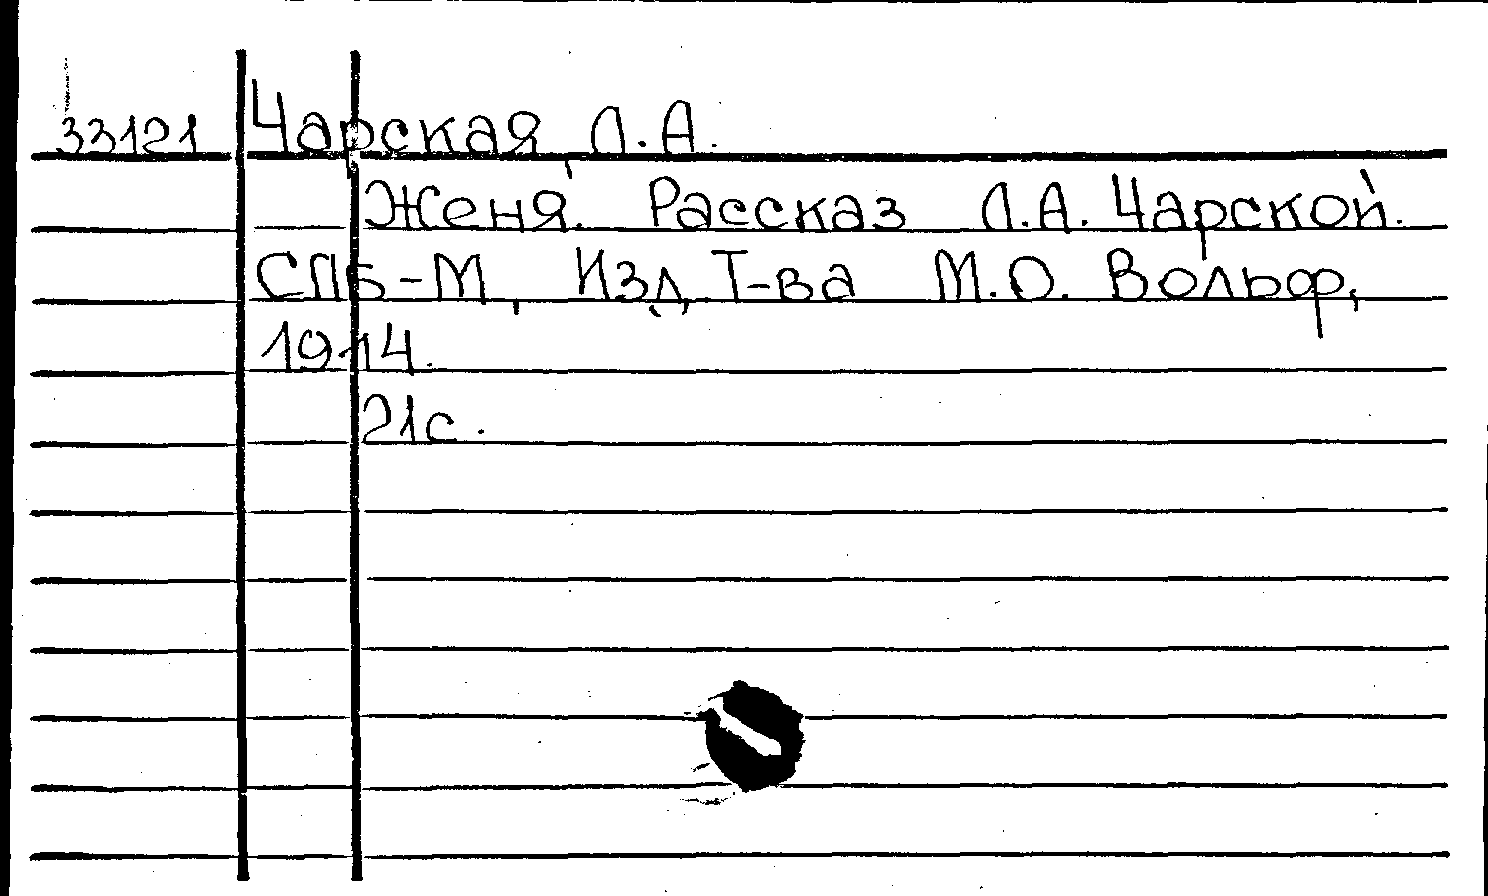 33121 Чарская, Л.А.
Женя. Рассказ Л.А. Чарской.
СПБ-М, Изд, Т-ва М.О. Вольф,
1914.
21с.